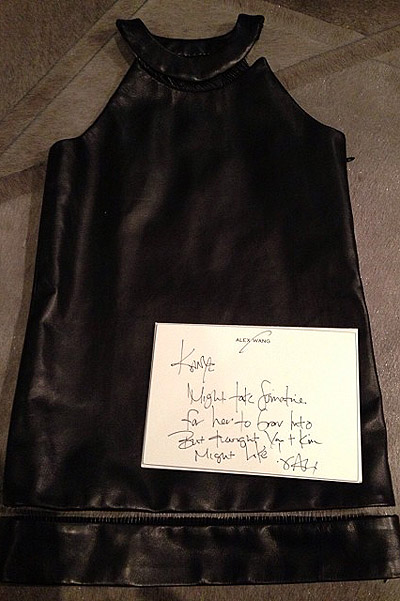 ALEX WANG
Kanye
Might take Sometime
for her to Grow Into
But thought You + Kim
Might Like
XALX